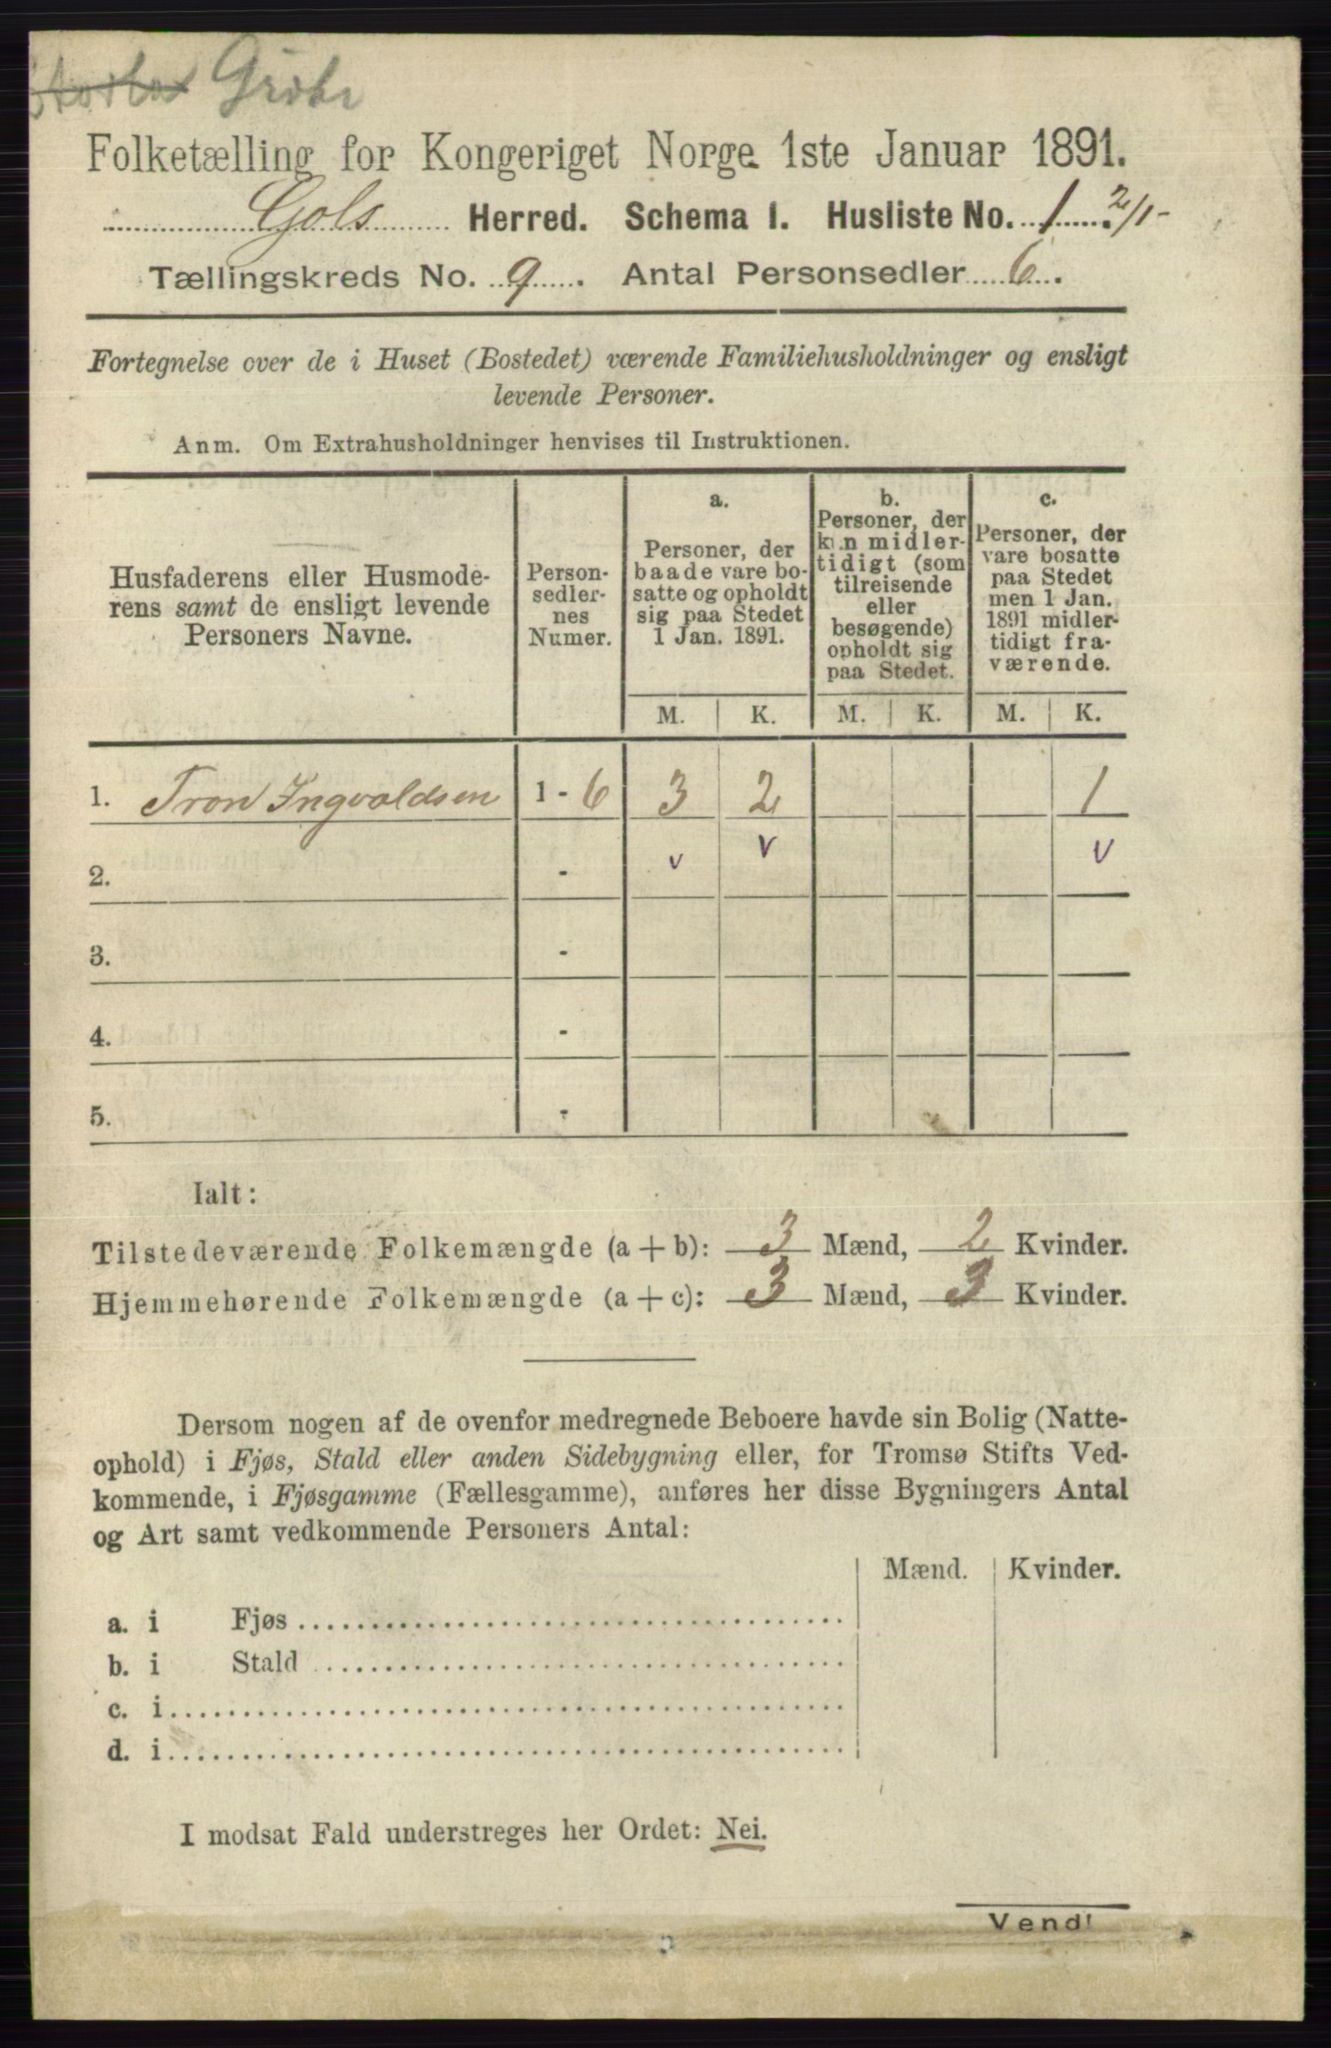 Folketælling for Kongeriget Norge 1ste Januar 1891.
Gols Herred. Schema 1. Husliste No. 1. 2/1-
Tællingskreds No. 9. Antal Personsedler 6.
Fortegnelse over de i Huset (Bostedet) værende Familiehusholdninger og ensligt
levende Personer.
Anm. Om Extrahusholdninger henvises til Instruktionen.
Husfaderens eller Husmode-
rens samt de ensligt levende
Personers Navne.
Person-
sedler-
nes
Numer.
a.
Personer, der
baade vare bo-
satte og opholdt
sig paa Stedet
1 Jan. 1891.
b.
Personer, der
kun midler-
tidigt (som
tilreisende
eller
besøgende)
opholdt sig
paa Stedet.
c.
Personer, der
vare bosatte
paa Stedet
men 1 Jan.
1891 midler-
tidigt fra-
værende.
M. K. M. K. M. K.
1. Tron Ingvaldsen 1 - 6 3 2 1
2. - v v v
3. -
4. -
5. -
Ialt:
Tilstedeværende Folkemængde (a + b): 3 Mænd, 2 Kvinder.
Hjemmehørende Folkemængde (a + c): 3 Mænd, 3 Kvinder.
Dersom nogen af de ovenfor medregnede Beboere havde sin Bolig (Natte-
ophold) i Fjøs, Stald eller anden Sidebygning eller, for Tromsø Stifts Ved-
kommende, i Fjøsgamme (Fællesgamme), anføres her disse Bygningers Antal
og Art samt vedkommende Personers Antal:
Mænd. Kvinder.
a. i Fjøs
b. i Stald
c. i
d. i
I modsat Fald understreges her Ordet: Nei.
Vend!